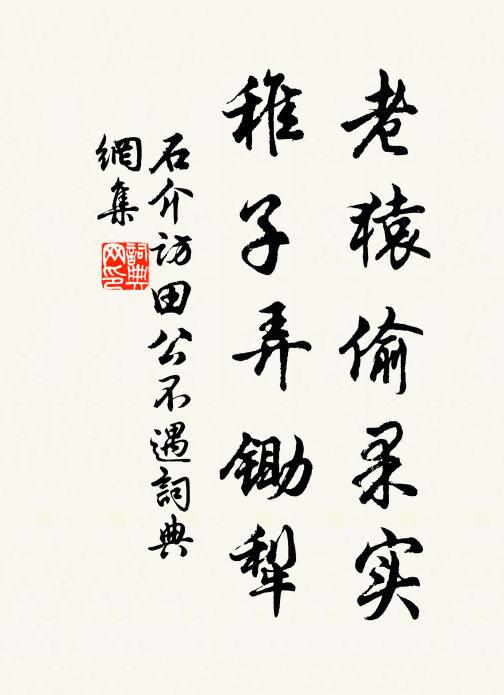 老猿偷果实
稚子弄锄犁
石介訪田公不遇詞典
網集
詞典
网印